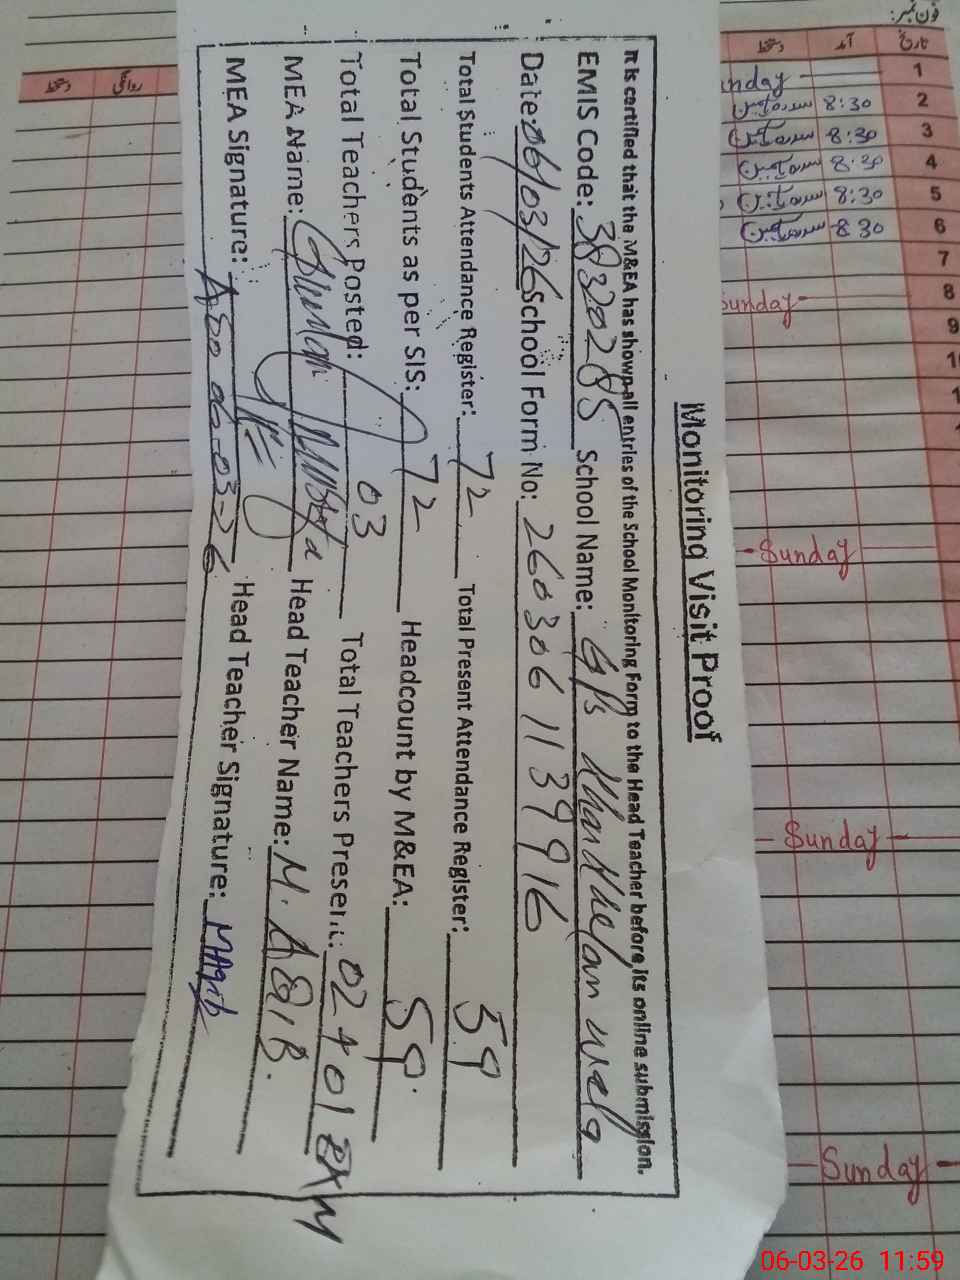 Monitoring Visit Proof
It is certified that the M&EA has shown all entries of the School Monitoring Form to the Head Teacher before its online submission.
EMIS Code: 38320285 School Name: G/Ps
Date: 06/03/26 School Form No: 2603061139916
Total Students Attendance Register: 72 Total Present Attendance Register: 59
Total Students as per SIS: 72 Headcount by M&EA: 59.
Total Teachers Posted: 03 Total Teachers Present: 02+01 EXM
MEA Name: Head Teacher Name: M. AQIB.
MEA Signature: Head Teacher Signature: MAqib
06-03-26
فون نمبر:
تاریخ آمد دستخط
روانگی دستخط
1 Sunday
2 8:30
3 8:30
4 8:30
5 8:30
6 8:30
7
8 Sunday
9
Sunday
Sunday
Sunday
06-03-26 11:59